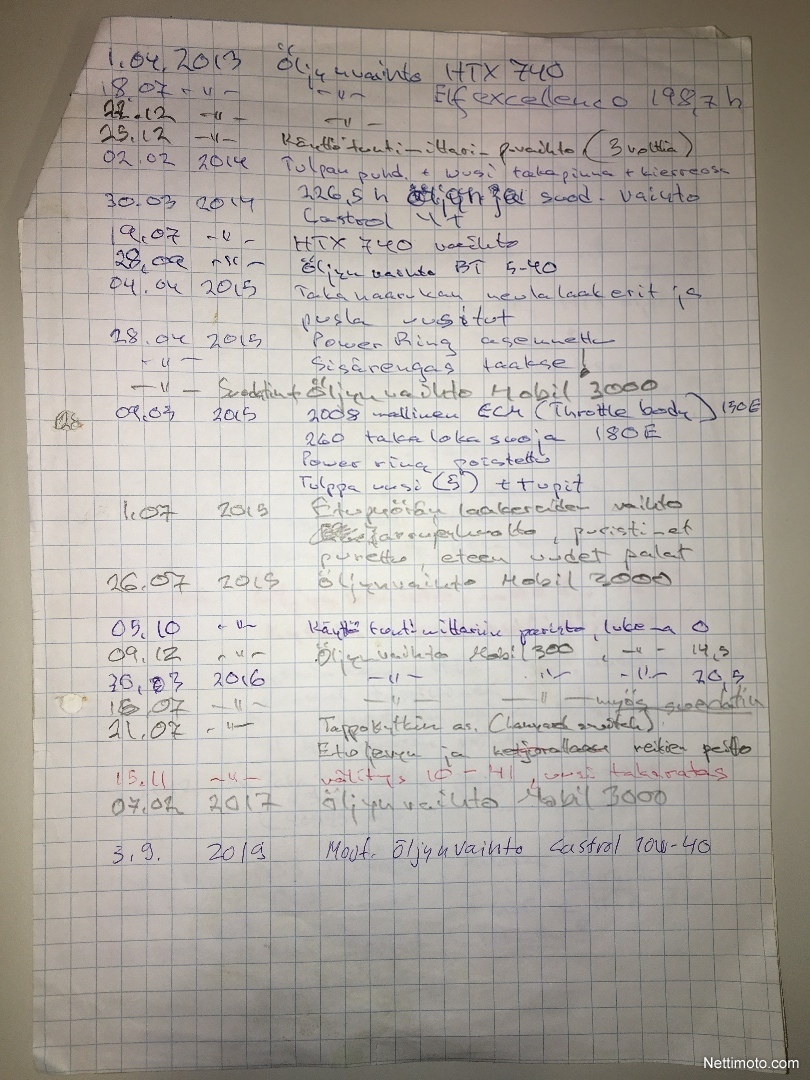 1.04.2013 Öljynvaihto HTX 740
18.07 -"- -"- Elf excellence 198,7 h
22.12 -"- -"-
25.12 -"- Käyttötuntimittari- p.vaihto (3 volttia)
02.02 2014 Tulpan puhd. + uusi takapinna + kierreosa
30.03 2014 226,5 h suod. vaihto
Castrol 4T
19.07 -"- HTX 740 vaihto
28.09 -"- Öljynvaihto BT 5-40
04.04 2015 Takahaarukan neulalaakerit ja
pusla uusitut
28.04 2015 Power Ring asennettu
-"- Sisärengas taakse!
-"- Suodatin + Öljynvaihto Mobil 3000
09.03 2015 2008 mallinen ECM (Throttle body) 150E
260 takalokasuoja 180E
Power ring poistettu
Tulppa uusi (5) ++upit
1.07 2015 Etupyörän laakereiden vaihto
puristimet
purettu, eteen uudet palat
26.07 2015 Öljynvaihto Mobil 3000
05.10 -"- Käyttötuntimittarin paristo, lukema 0
09.12 -"- Öljynvaihto Mobil 300, -"- 14,5
-"- -"- 20,5
16.07 -"- -"- -"- myös suodatin
21.07 -"- Tappokytkin as. (Lanyard switch)
Etulevyn ja reikien pesu
15.11 -"- välitys 10-41, uusi takaratas
07.02 2017 Öljynvaihto Mobil 3000
3.9. 2019 Moot. Öljynvaihto Castrol 10w-40
Nettimoto.com